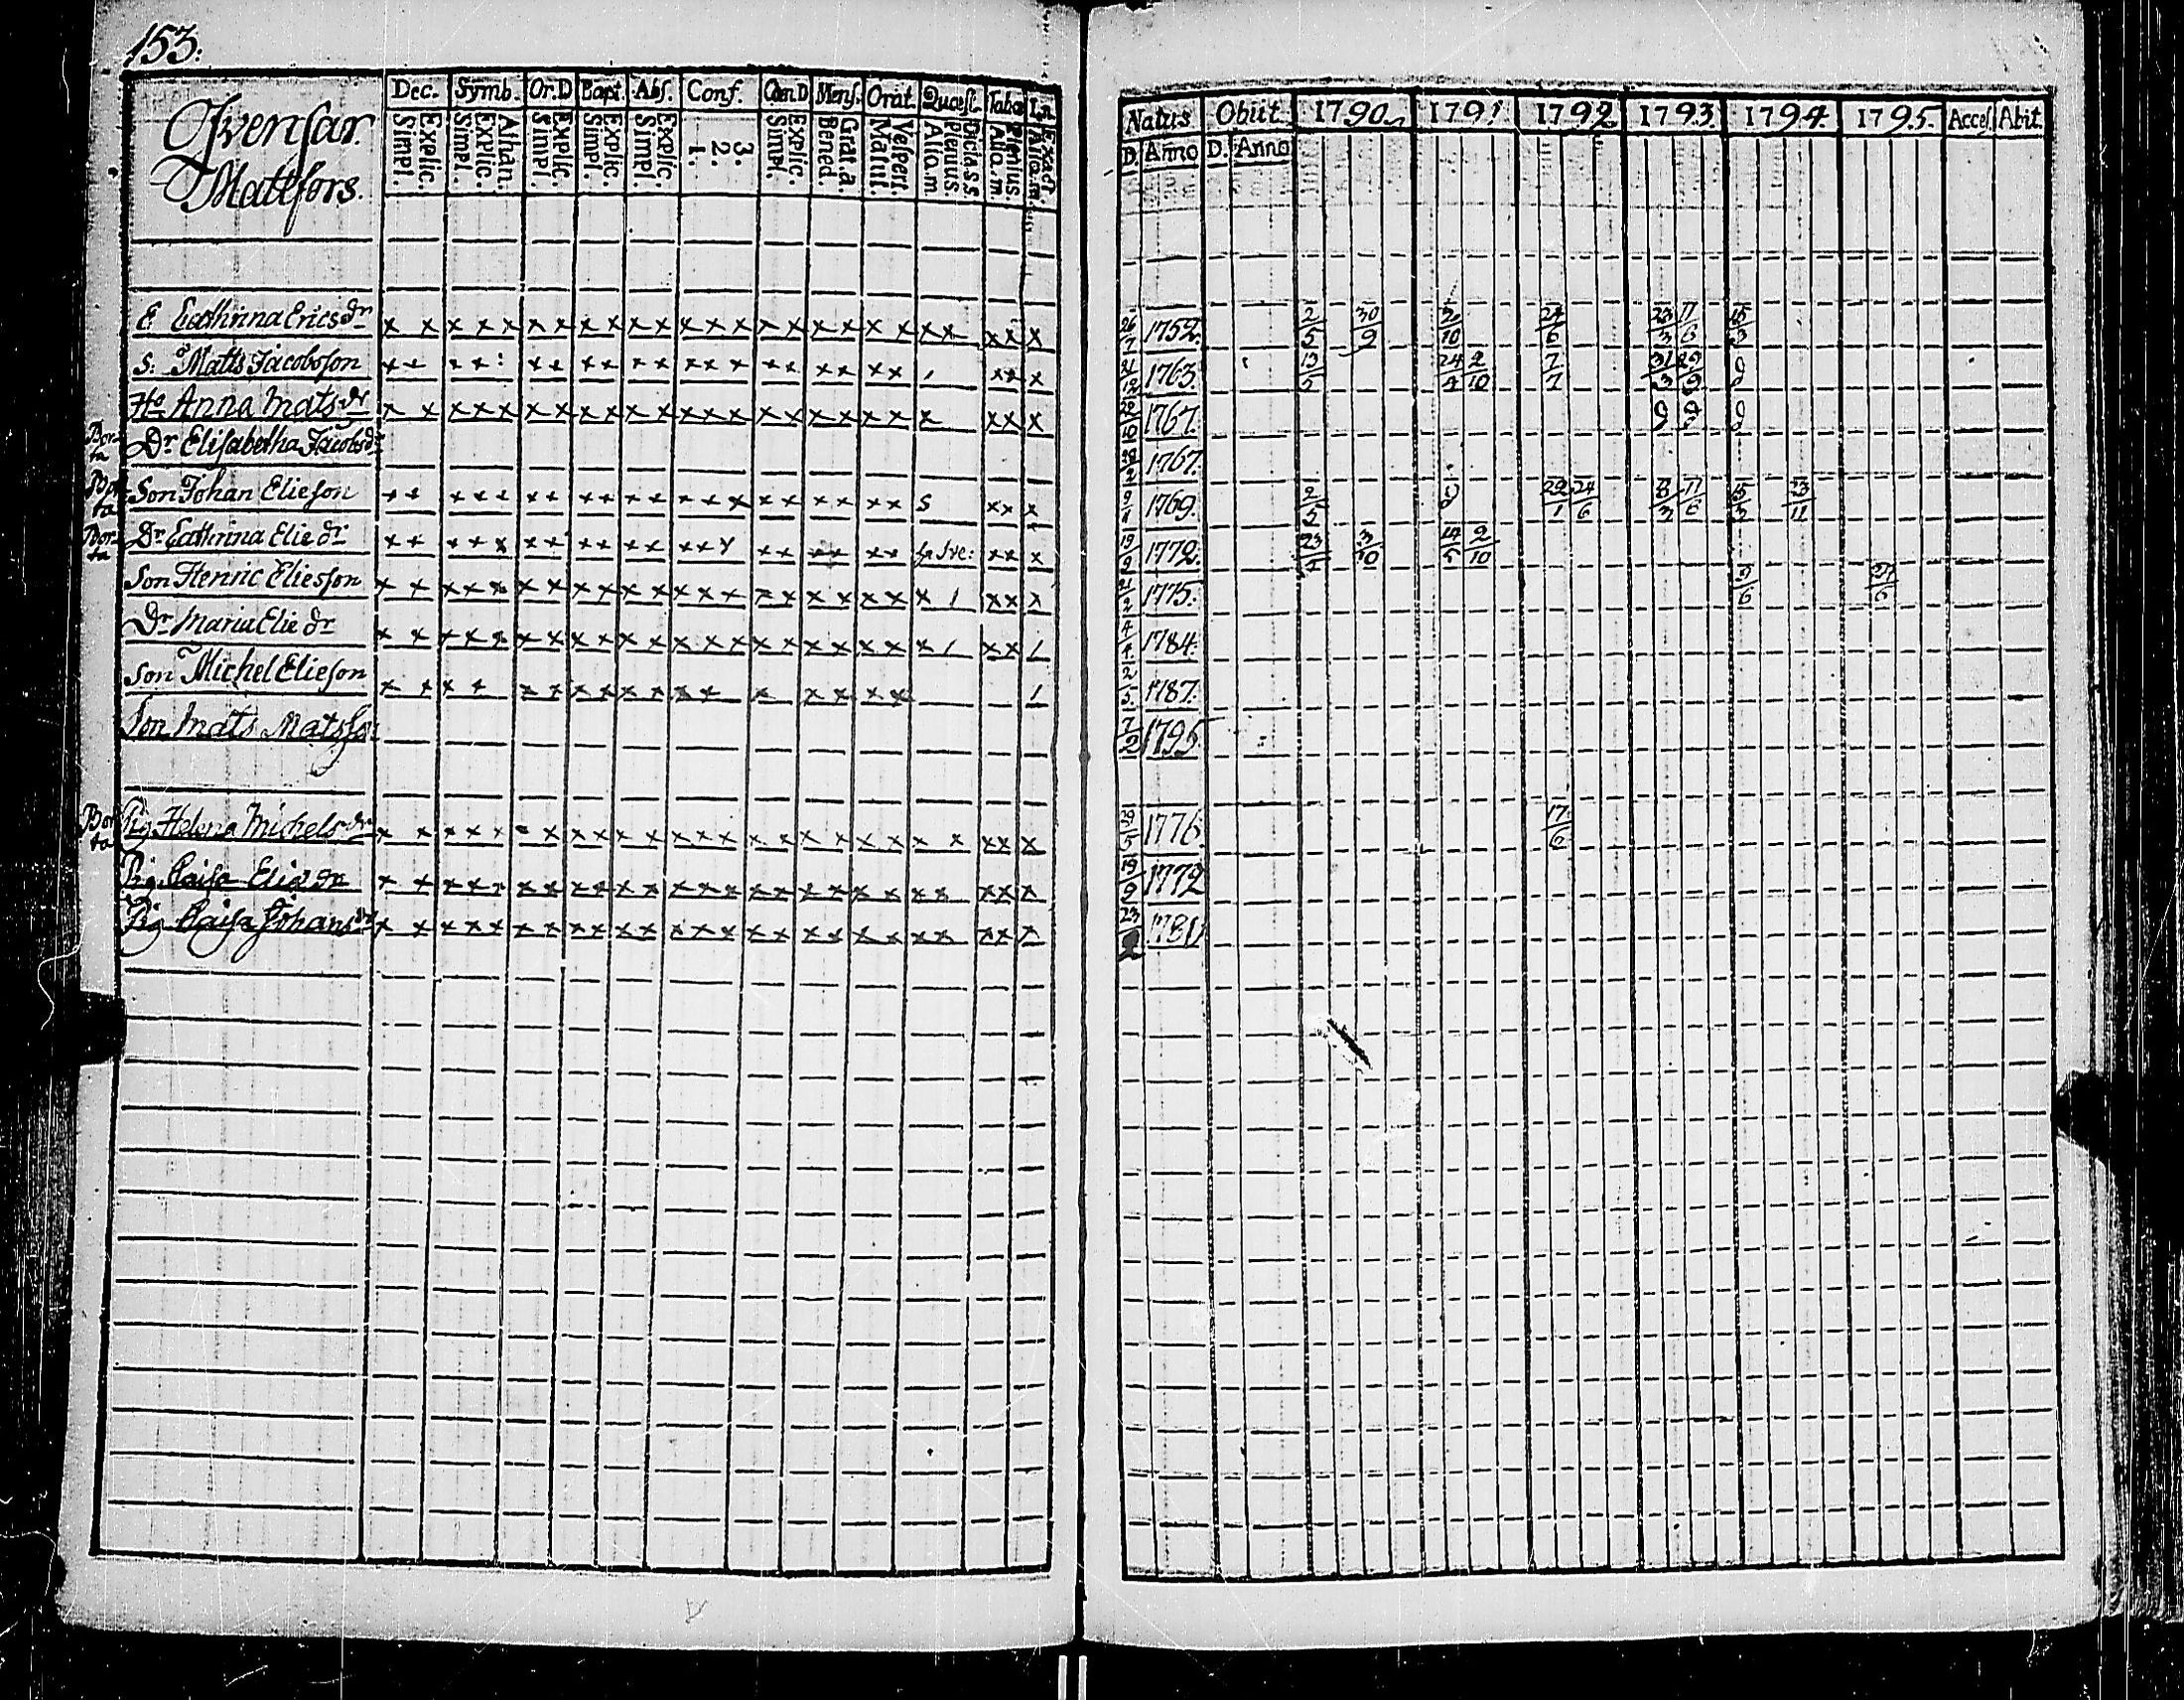 153.
Ifvensar.
Mattfors.
Dec. Symb. Or.D Bapt. Abs. Conf. Cœn.D Mens. Orat. Quæst.
Simpl. Explic. Simpl. Explic. Athan. Simpl. Explic. Simpl. Explic. Simpl. Explic. 1. 2. 3. Simpl. Explic. Bened. Grat.a. Matut. Vespert. Alio.m. Plenius. Dicta.s.s. Alio.m. Plenius Alio.m. Exact
Natus Obiit. 1790 1791. 1792 1793 1794. 1795. Acces. Abit.
D. Anno D. Anno
E. Cathrina Erics dr x x x x x x x x x x x x x x x x x x x x x x x x 26/7 1752. 2/5 30/9 2/10 24/6 23/3 11/6 15/3
S. Matts Jacobsson 21/12 1763. 13/5 24/4 2/10 7/7 31/3 29/9
Ho Anna Mats dr x x x x x x x x x x x x x x x x x x x x x x x 1767.
Borta Dr Elisabetha Jacobs dr 28/2 1767.
Borta Son Johan Elieson 1769. 2/5 29/1 24/6 3/3 11/6 15/3 23/11
Borta Dr Cathrina Elie dr 19/9 1772. 23/4 3/10 14/5 2/10
Son Henric Eliesson 21/2 1775. 9/6 27/6
Dr Maria Elie dr 4/4 1784.
Son Michel Elieson 2/5 1787.
Son Mats Matsson 7/2 1795
Borta Pig. Helena Michels dr 29/5 1776. 17/6
Pig. Caisa Elia dr 19/9 1772
Pig Caisa Johans dr 1781